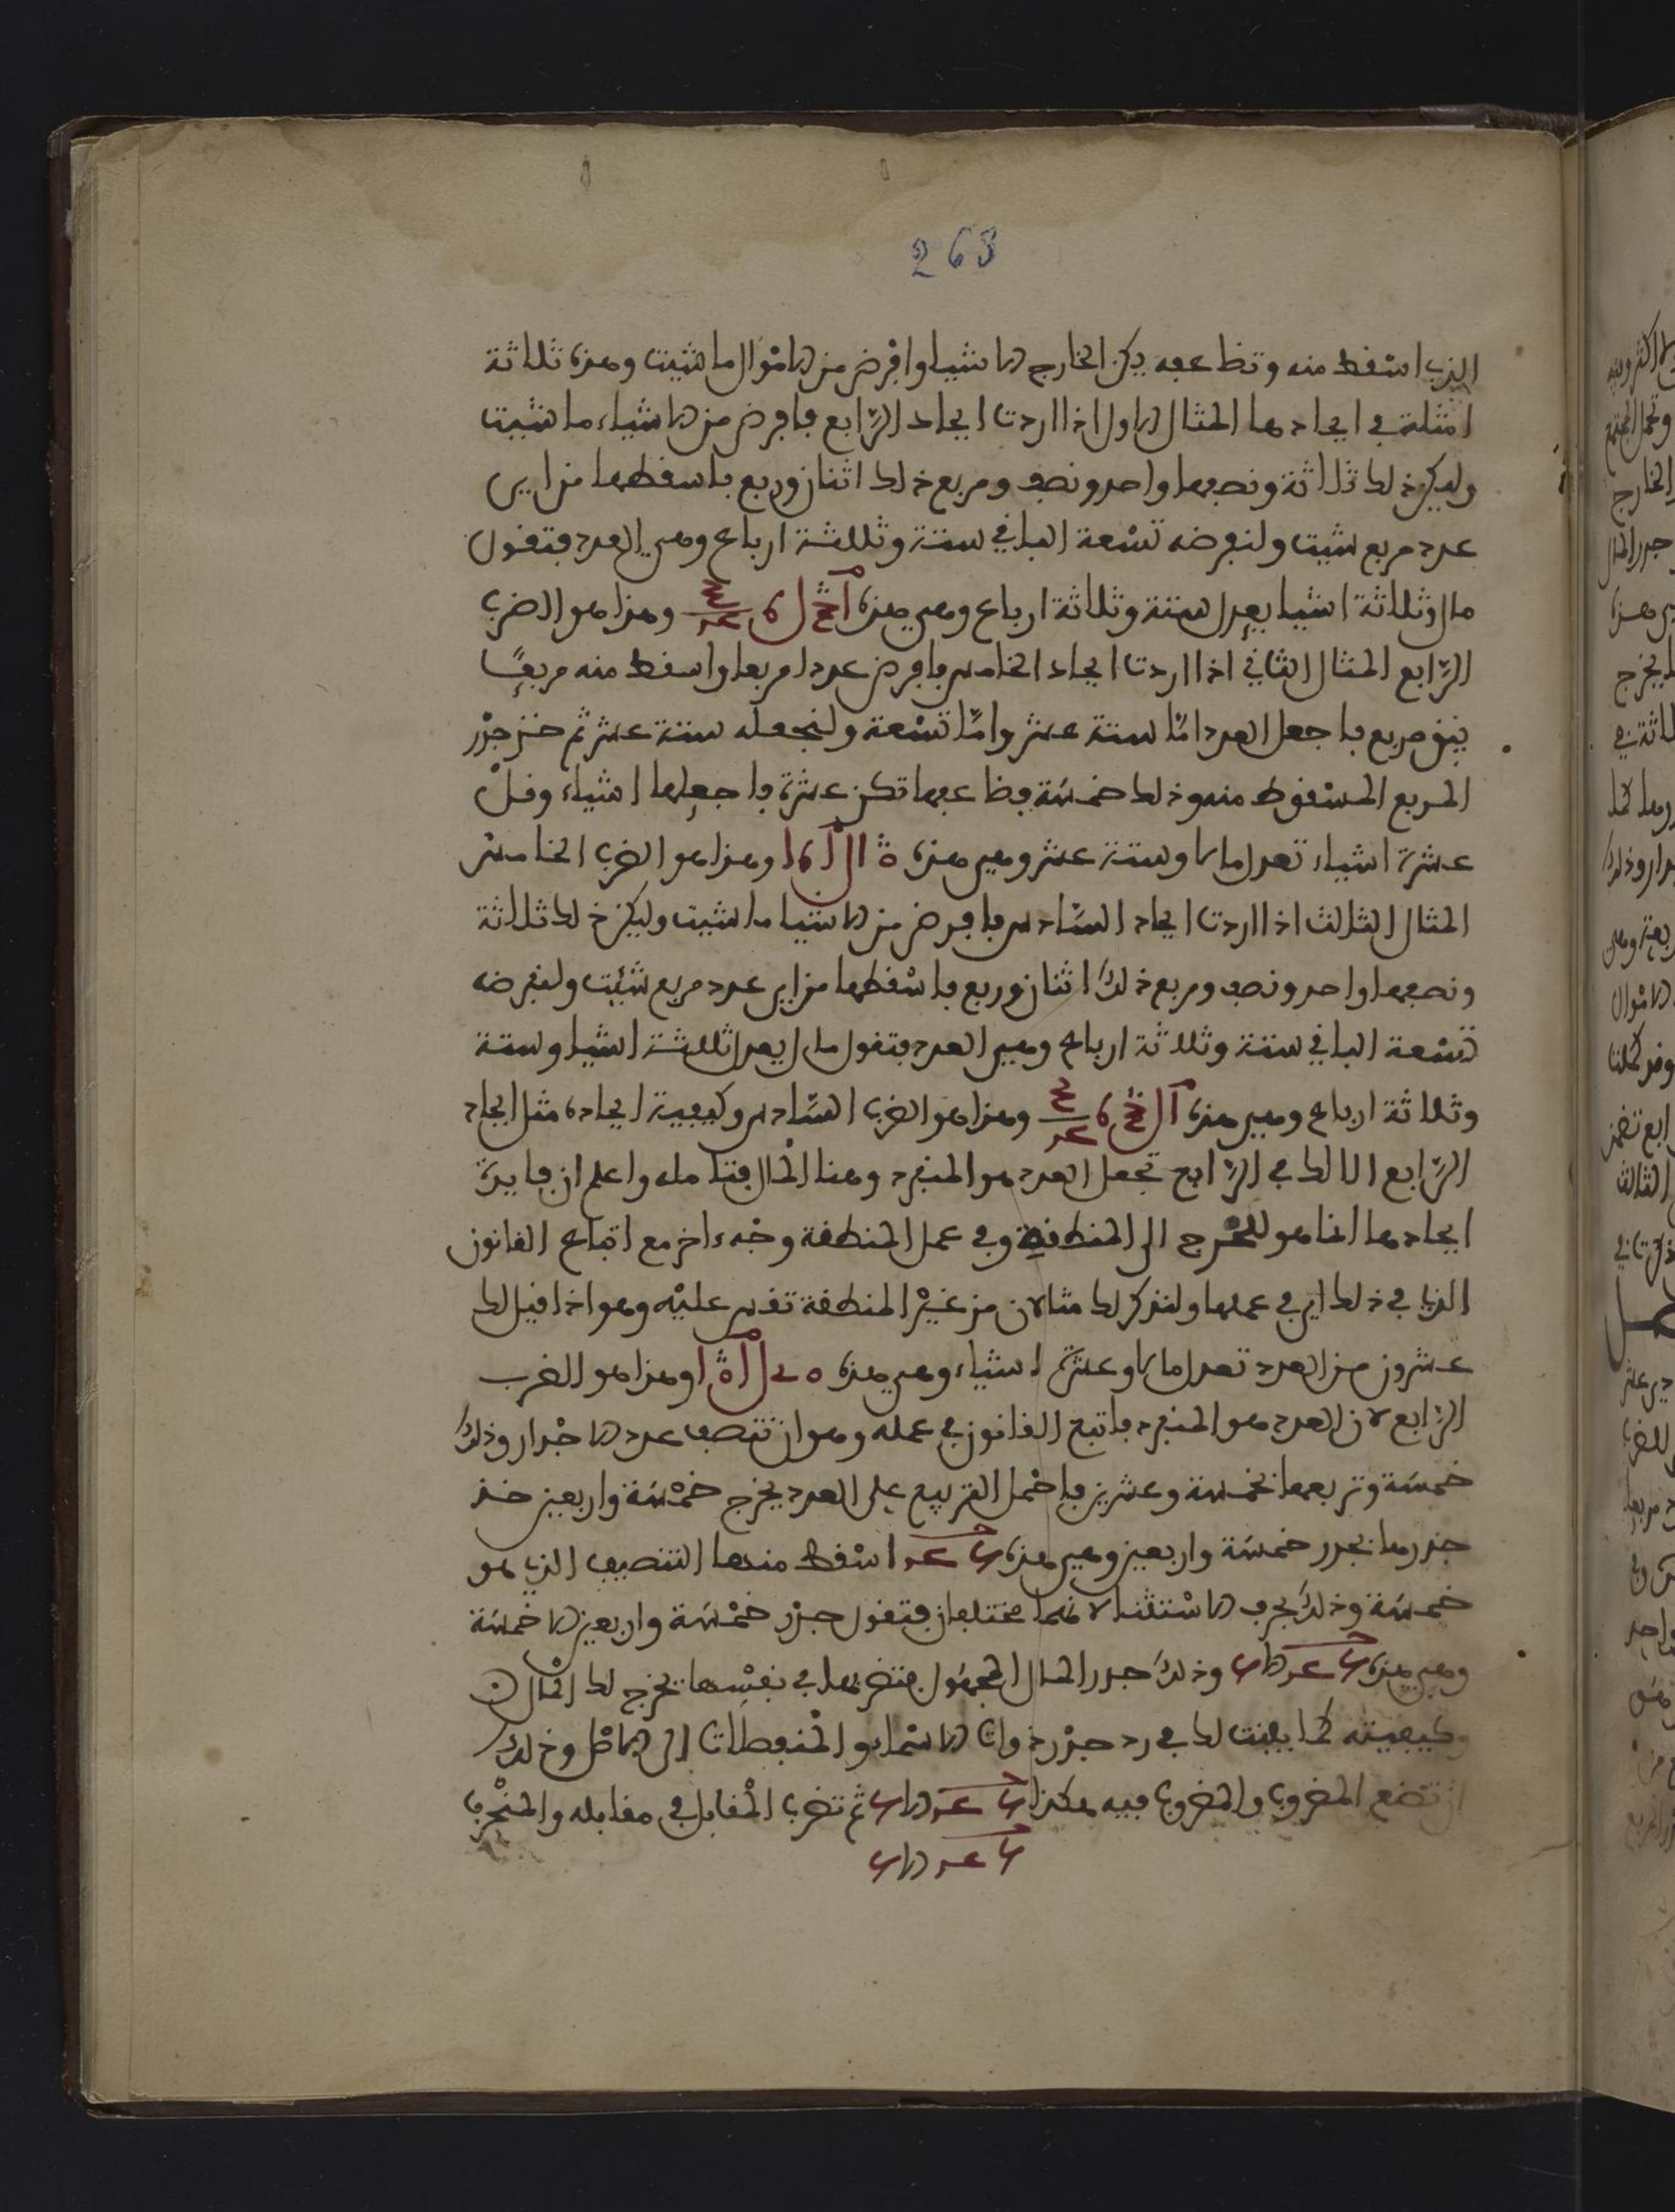 268
الذي اسقط منه وتضاعفه يكن الخارج الاشيا وافرض من الاموال ما شيت وهذه ثلاثة
امثلة في ايجادها المثال الاول اذا اردت ايجاد الرابع فافرض من الاشياء ما شيت
وليكن ذلك ثلاثة ونصفها واحد ونصف ومربع ذلك اثنان وربع فاسقطهما من اي
عدد مربع شيت ولنفرضه تسعة الباقي ستة وثلثة ارباع وهي العدد فتقول
مال وثلاثة اشيا يعدل ستة وثلاثة ارباع وهي هذه وهذا هو الضرب
الرابع المثال الثاني اذا اردت ايجاد الخامس فافرض عددا مربعا واسقط منه مربعا
يبق مربع فاجعل العدد امّا ستة عشر وامّا تسعة ولنجعله ستة عشر ثم خذ جذر
المربع المسقوط منه وذلك خمسة فضاعفها تكن عشرة فاجعلها اشياء وقل
عشرة اشياء تعدل مالا وستة عشر وهي هذه وهذا هو الضرب الخامس
المثال الثالث اذا اردت ايجاد السادس فافرض من الاشيا ما شيت وليكن ذلك ثلاثة
ونصفها واحد ونصف ومربع ذلك اثنان وربع فاسقطها من اي عدد مربع شئيت ولنفرضه
تسعة الباقي ستة وثلاثة ارباع وهي العدد فتقول مال يعدل ثلثة اشيا وستة
وثلاثة ارباع وهي هذه وهذا هو الضرب السادس وكيفية ايجاده مثل ايجاد
الرابع الا انك في الرابع تجعل العدد هو المنفرد وهنا المال فتامله واعلم ان فايدة
ايجادها انما هو للتخرج الى المنطقة وفي عمل المنطقة وجه ءاخر مع اتباع القانون
الذي في ذلك اي في عملها ولنذكر لك مثالا من غير المنطقة تقس عليه وهو اذا قيل لك
عشرون من العدد تعدل مالا وعشرة اشياء وهي هذه وهذا هو الضرب
الرابع لان العدد هو المنفرد فاتبع القانون في عمله وهو ان تنصف عدد الاجذار وذلك
خمسة وتربعها بخمسة وعشرين فاحمل التربيع على العدد يخرج خمسة واربعين خذ
جذرها بجذر خمسة واربعين وهي هذه اسقط منها التنصيف الذي هو
خمسة وذلك بحرف الاستثنا لانهما مختلفان فتقول جذر خمسة واربعين الا خمسة
وهي هذه وذلك جذر المال المجهول فتضربها في نفسها يخرج لك المال
وكيفيته كما بينت لك في رد جذر ذوات الاسما و المنفصلات الى الاصل وذلك
ان تضع المضروب والمضروب فيه هكذا ثم تضرب المقابل في مقابله والمنحرف